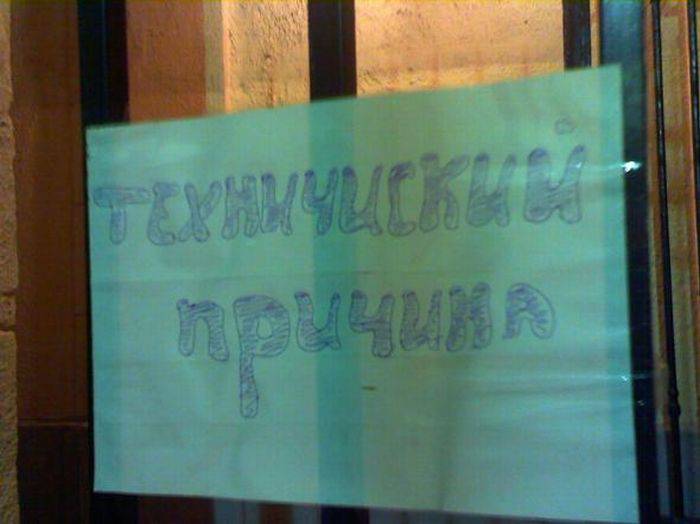 ТЕХНИЧИСКИЙ
причина